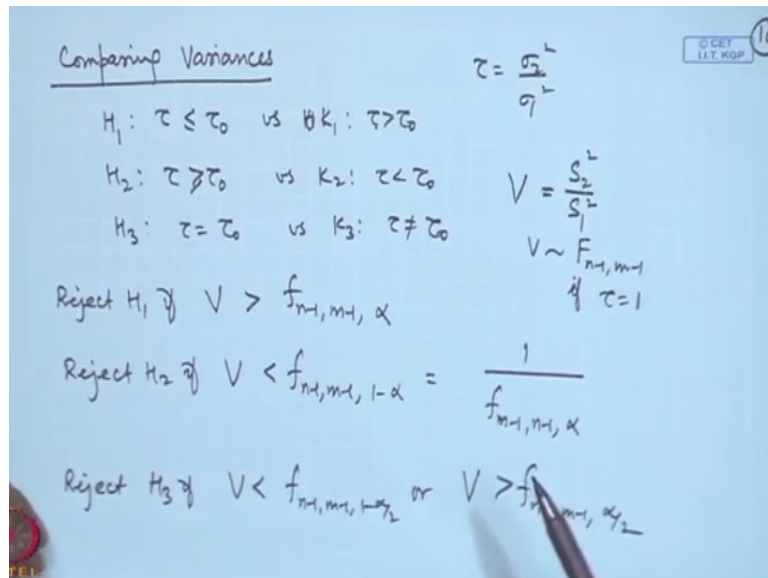 Comparing Variances
τ = σ₂² / σ₁²
© CET
I.I.T. KGP
H₁: τ ≤ τ₀ vs K₁: τ > τ₀
H₂: τ ≥ τ₀ vs K₂: τ < τ₀
H₃: τ = τ₀ vs K₃: τ ≠ τ₀
V = S₂² / S₁²
V ~ F n-1, m-1
if τ = 1
Reject H₁ if V > f n-1, m-1, α
Reject H₂ if V < f n-1, m-1, 1-α = 1 / f m-1, n-1, α
Reject H₃ if V < f n-1, m-1, 1-α/2 or V > f m-1, α/2